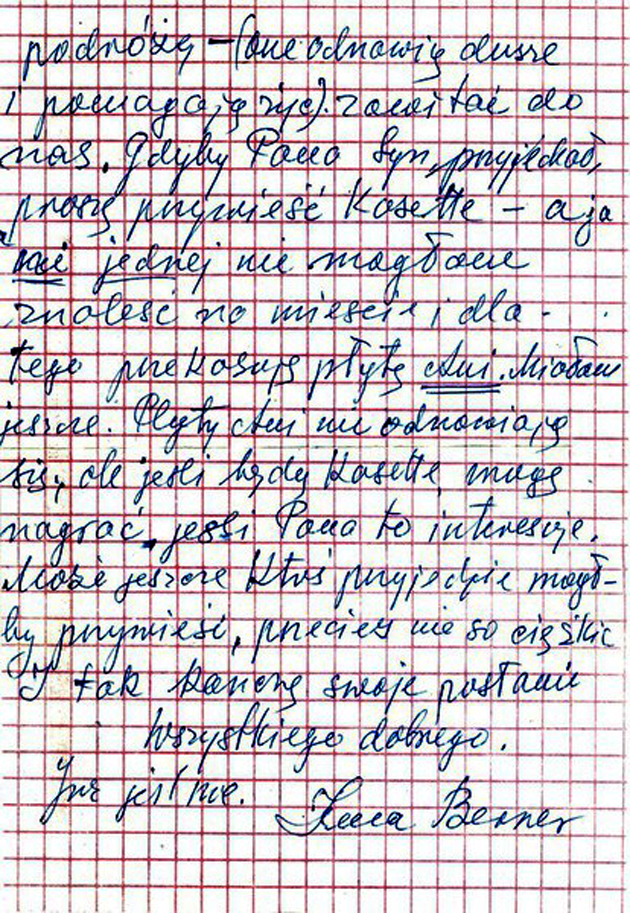 podróżą – (one odnowią dusze
i pomagają żyć). zawitać do
nas. Gdyby Pana Syn, przyjechał,
proszę przywieść Kasette – a ja
ani jednej nie mogłam
znaleść na mieście i dla-
tego przekazuję płytę Ani. Miałam
jeszcze. Płyty Ani nie odnawiają
się, ale jeśli będą Kasette, mogę
nagrać, jeśli Pana to interesuje.
Może jeszcze Ktoś przyjedzie mogł-
by przywieść, przecież nie so ciężkie
I tak kończę swoje posłanie
Wszystkiego dobrego.
Już jest noc.
Berner